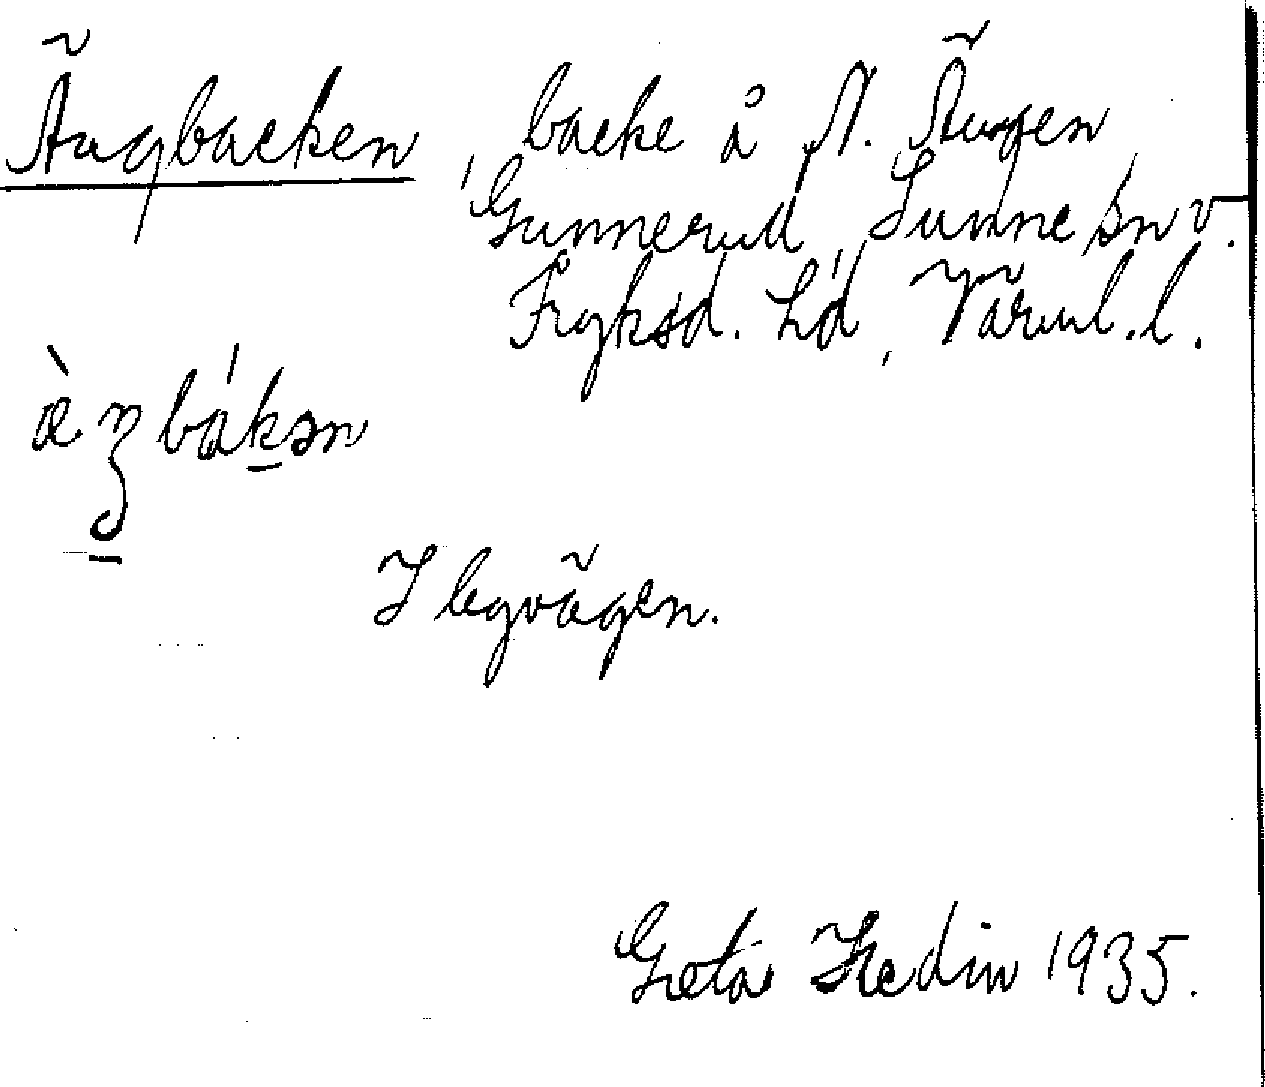 Ängbacken, backe å N. Ängen,
Gunnerud, Sunne sn v.
Fryksd. hd, Värml. l.
I byvägen.
Greta Hedin 1935.